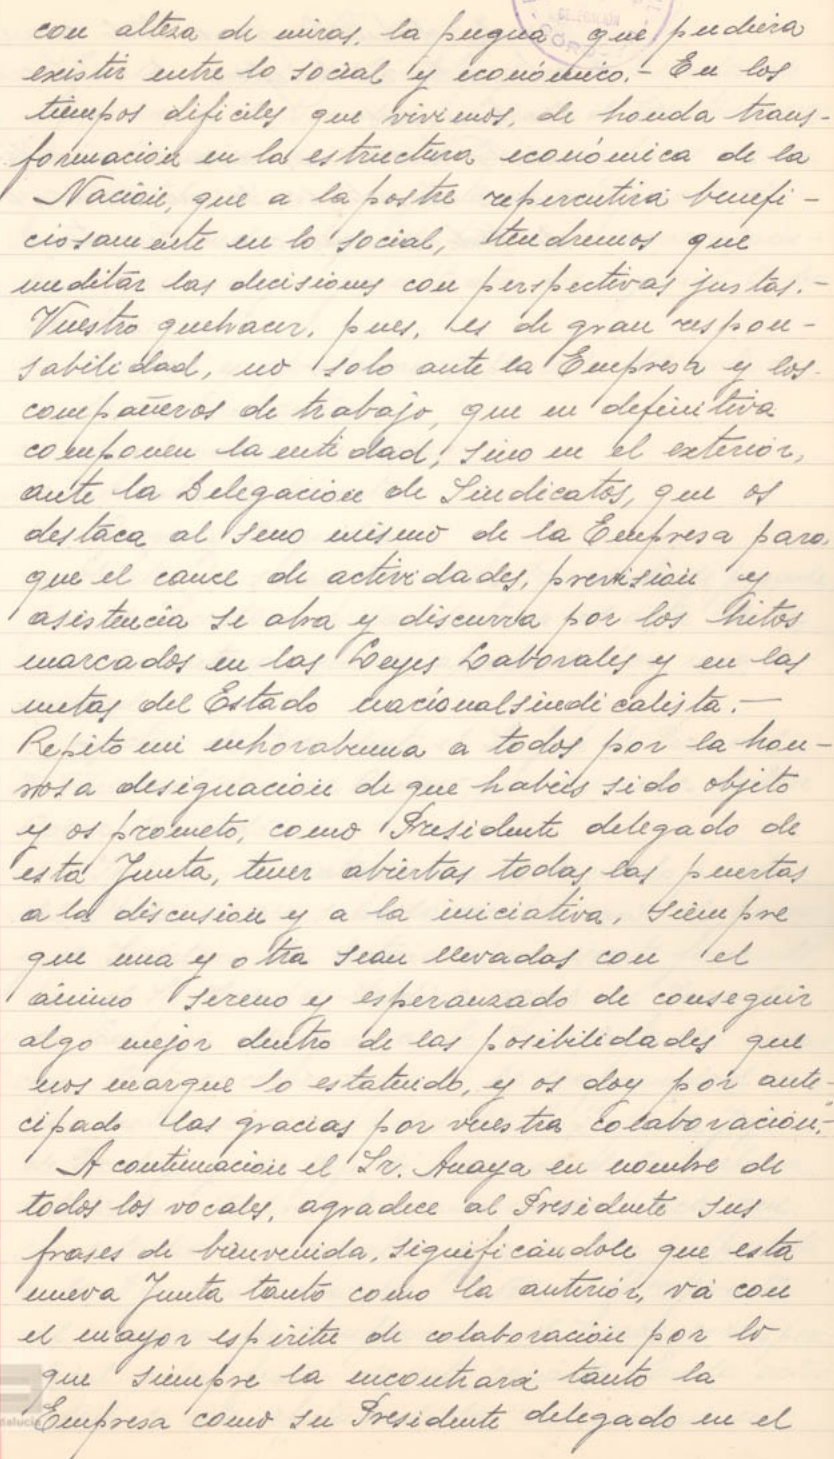 DELEGACIÓN
con alteza de miras, la pugna que pudiera
existir entre lo social y económico.- En los
tiempos dificiles que vivimos, de honda trans-
formación en la estructura económica de la
Nación, que a la postre repercutirá benefi-
ciosamente en lo social, tendremos que
meditar las decisiones con perspectivas justas.-
Vuestro quehacer, pues, es de gran respon-
sabilidad, no solo ante la Empresa y los
compañeros de trabajo, que en definitiva
componen la entidad, sino en el exterior,
ante la Delegación de Sindicatos, que os
destaca al seno mismo de la Empresa para
que el cauce de actividades, previsión y
asistencia se abra y discurra por los hitos
marcados en las Leyes Laborales y en las
metas del Estado nacionalsindicalista.-
Repito mi enhorabuena a todos por la hon-
rosa designación de que habéis sido objeto
y os prometo, como Presidente delegado de
esta Junta, tener abiertas todas las puertas
a la discusión y a la iniciativa, siempre
que una y otra sean llevadas con el
ánimo sereno y esperanzado de conseguir
algo mejor dentro de las posibilidades que
nos marque lo estatuido, y os doy por anti-
cipado las gracias por vuestra colaboración.-
A continuación el Sr. Anaya en nombre de
todos los vocales, agradece al Presidente sus
frases de bienvenida, significándole que esta
nueva Junta tanto como la anterior, vá con
el mayor espíritu de colaboración por lo
que siempre la encontrará tanto la
Empresa como su Presidente delegado en el